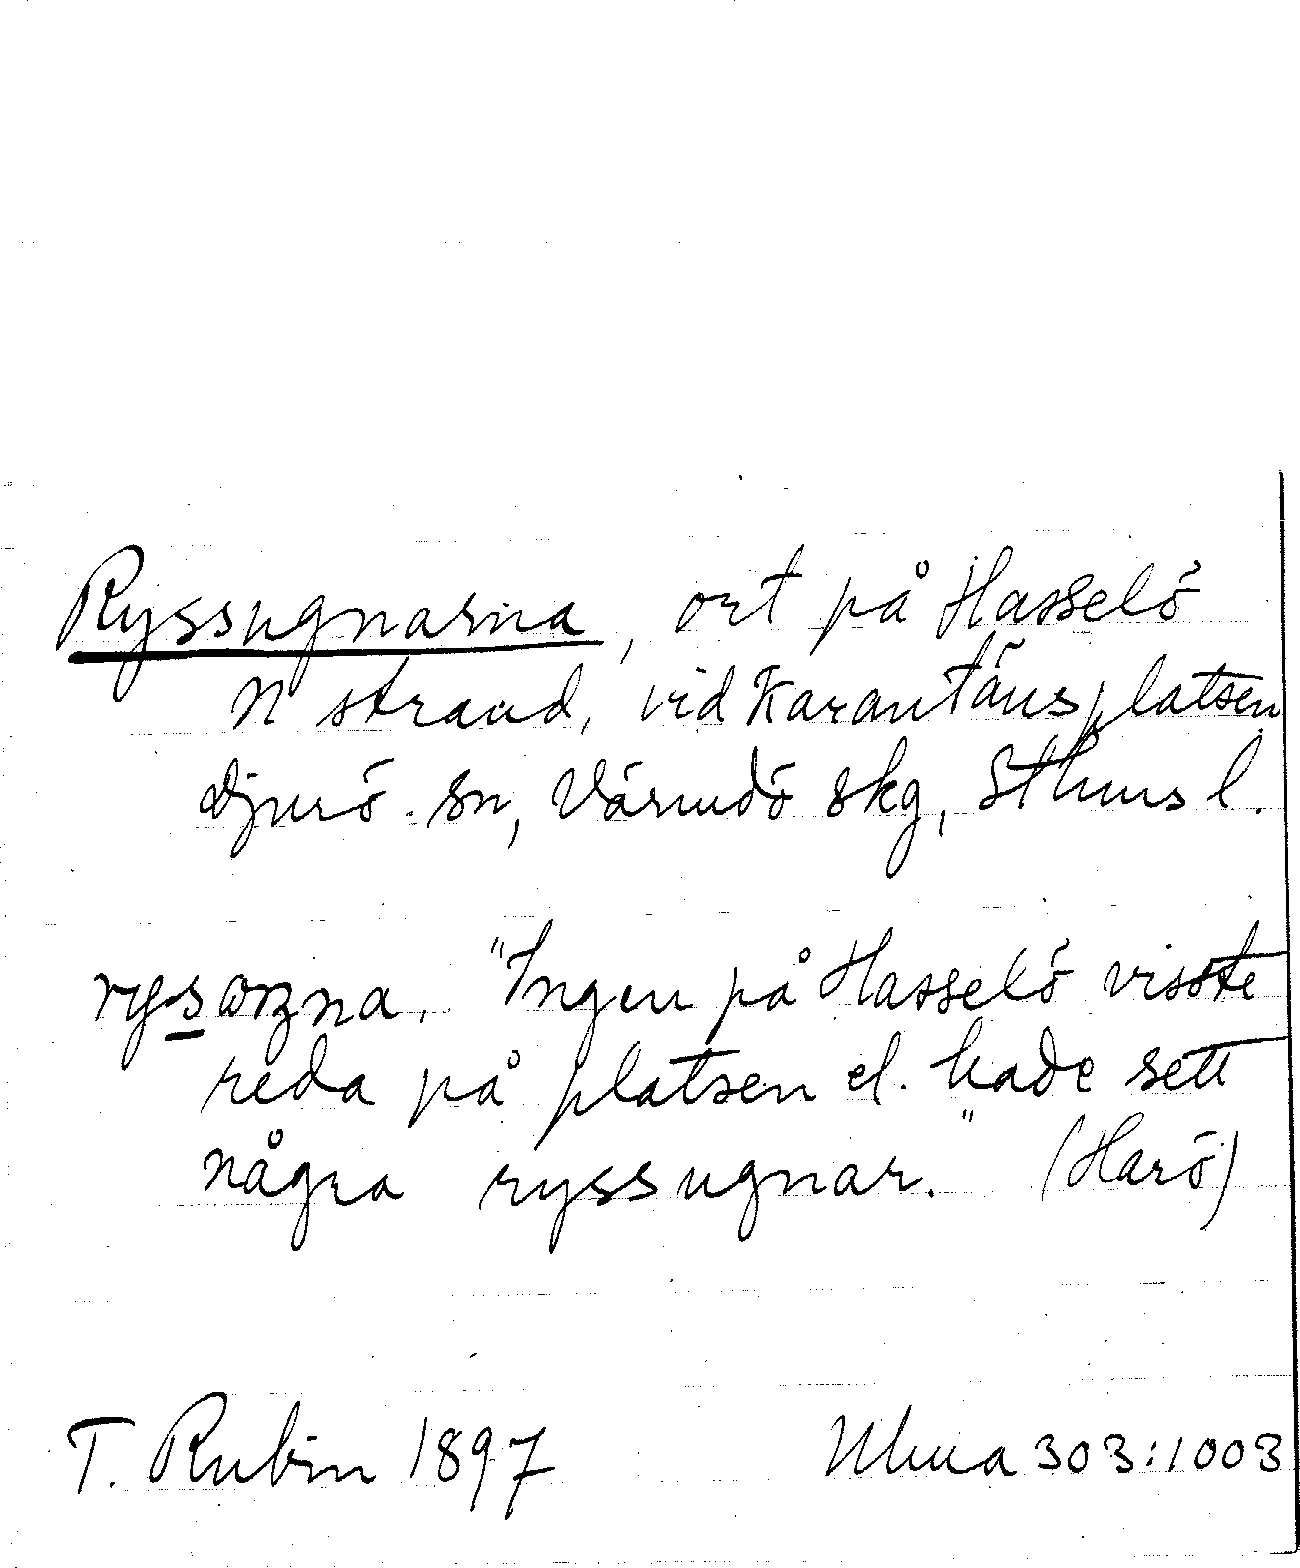 Ryssugnarna, ort på Hasselö
N strand, vid Karantänsplatsen
Djurö sn, Värmdö skg, Sthms l.
"Ingen på Hasselö visste
reda på platsen el. hade sett
några ryssugnar." (Harö)
T. Rubin 1897 Ulma 303:1003